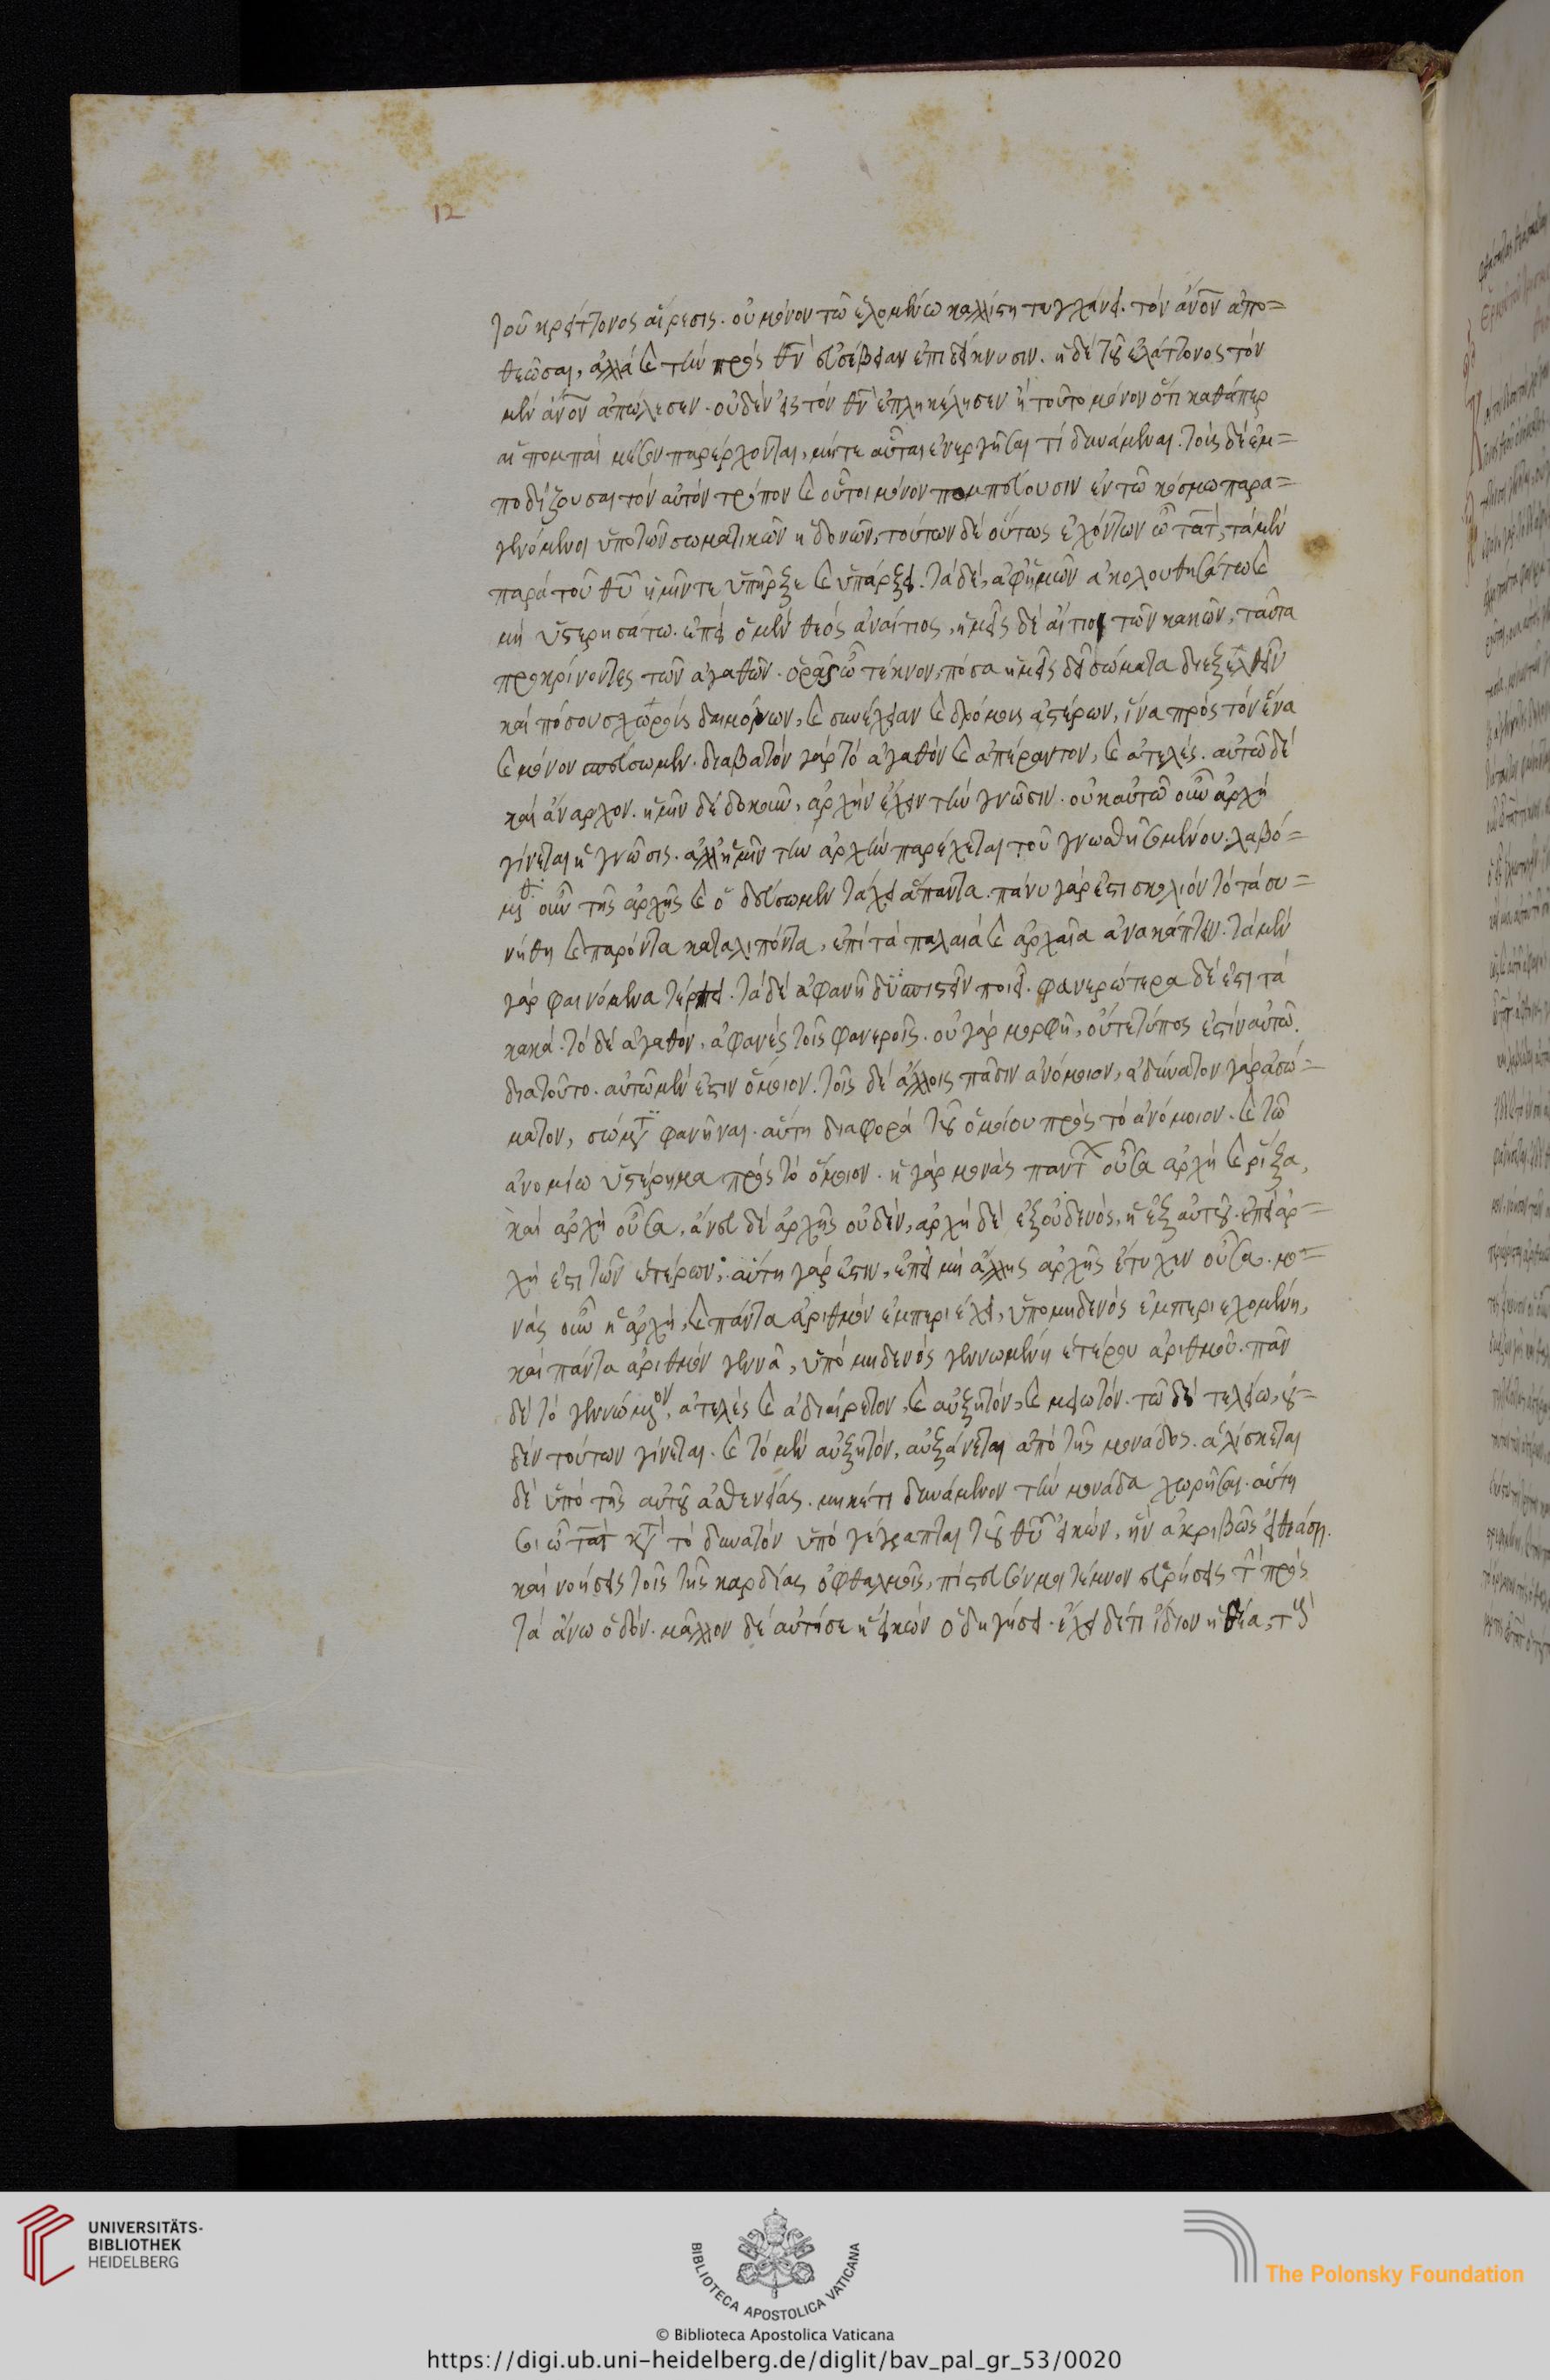 12
τοῦ κρείττονος αἵρεσις. οὐ μόνον τῶ ἑλομένω καλλίστη τυγχάνει. τὸν ἄνον ἀπο=
θεῶσαι, ἀλλὰ καὶ τὴν πρὸς θν̄ εὐσέβειαν ἐπιδείκνυσιν. ἡ δὲ τοῦ ἐλάττονος τὸν
μὲν ἄνον ἀπώλεσεν. οὐδὲν εἰς τὸν θν̄ ἐπλημέλησεν ἢ τοῦτο μόνον ὅτι καθάπερ
αἱ πομπαὶ μέσον παρέρχονται, μήτε αὗται ἐνεργῆσαι τὶ δυνάμεναι. τοὺς δὲ ἐμ=
ποδίζουσαι τὸν αὐτὸν τρόπον καὶ οὗτοι μόνον πομπεύουσιν ἐν τῶ κόσμω παρα=
γενόμενοι ὑπὸ τῶν σωματικῶν ἡδονῶν, τούτων δὲ οὕτως ἐχόντων ὦ τὰτ, τὰ μὲν
παρὰ τοῦ θῦ ἡμῖν τε ὑπῆρξε καὶ ὑπάρξει. τὰ δὲ, ἀφ' ἡμῶν ἀκολουθησάτω καὶ
μὴ ὑστερησάτω. ἐπεὶ ὁ μὲν θεὸς ἀναίτιος, ἡμεῖς δὲ αἴτιοι τῶν κακῶν, ταῦτα
προκρίνοντες τῶν ἀγαθῶν. ὁρᾶς ὦ τέκνον, πόσα ἡμᾶς δεῖ σώματα διεξελθεῖν
καὶ πόσους χοροὺς δαιμόνων, καὶ συνέχειαν καὶ δρόμους ἀστέρων, ἵνα πρὸς τὸν ἕνα
καὶ μόνον σπεύσωμεν. διαβατὸν γὰρ τὸ ἀγαθὸν καὶ ἀπέραντον, καὶ ἀτελές. αὐτῶ δὲ
καὶ ἄναρχον. ἡμῖν δὲ δοκοῦν, ἀρχὴν ἔχειν τὴν γνῶσιν. οὐκ αὐτῶ οὖν ἀρχὴ
γίνεται ἡ γνῶσις. ἀλλ' ἡμῖν τὴν ἀρχὴν παρέχεται τοῦ γνωσθησομένου. λαβό=
μεθα οὖν τῆς ἀρχῆς καὶ ὁδεύσωμεν τάχει ἅπαντα. πάνυ γάρ ἐστι σκολιὸν τὸ τὰ συ=
νήθη καὶ παρόντα καταλιπόντα, ἐπὶ τὰ παλαιὰ καὶ ἀρχαῖα ἀνακάπτειν. τὰ μὲν
γὰρ φαινόμενα τέρπει. τὰ δὲ ἀφανῆ δυσπιστεῖν ποιεῖ. φανερώτερα δέ ἐστι τὰ
κακά. τὸ δὲ ἀγαθὸν, ἀφανὲς τοῖς φανεροῖς. οὐ γὰρ μορφὴ, οὔτε τύπος ἐστὶν αὐτῶ.
διατοῦτο. αὐτῶ μέν ἐστιν ὅμοιον. τοῖς δὲ ἄλλοις πᾶσιν ἀνόμοιον, ἀδύνατον γὰρ ἀσώ=
ματον, σώματι φανῆναι. αὕτη διαφορὰ τοῦ ὁμοίου πρὸς τὸ ἀνόμοιον. καὶ τῶ
ἀνομοίω ὑστέρημα πρὸς τὸ ὅμοιον. ἡ γὰρ μονὰς πάντων οὖσα ἀρχὴ καὶ ῥίζα,
καὶ ἀρχὴ οὖσα, ἄνευ δὲ ἀρχῆς οὐδὲν, ἀρχὴ δὲ ἐξ οὐδενὸς, ἢ ἐξ αὐτῆς. ἐπεὶ ἀρ=
χή ἐστι τῶν ἑτέρων. αὕτη γάρ ἐστιν, ἐπεὶ μὴ ἄλλης ἀρχῆς ἔτυχεν οὖσα. μο=
νὰς οὖν ἡ ἀρχὴ, καὶ πάντα ἀριθμὸν ἐμπεριέχει, ὑπὸ μηδενὸς ἐμπεριεχομένη,
καὶ πάντα ἀριθμὸν γεννᾶ, ὑπὸ μηδενὸς γεννωμένη ἑτέρου ἀριθμοῦ. πᾶν
δὲ τὸ γεννώμενον, ἀτελὲς καὶ ἀδιαίρετον, καὶ αὐξητὸν, καὶ μειωτόν. τῶ δὲ τελείω, οὐ=
δὲν τούτων γίνεται. καὶ τὸ μὲν αὐξητὸν, αὐξάνεται ἀπὸ τῆς μονάδος. ἁλίσκεται
δὲ ὑπὸ τῆς αὐτοῦ ἀσθενείας. μηκέτι δυνάμενον τὴν μονάδα χωρῆσαι. αὕτη
σοι ὦ τὰτ κατὰ τὸ δυνατὸν ὑπογέγραπται τοῦ θῦ εἰκὼν, ἣν ἀκριβῶς εἰ θεάση.
καὶ νοήσεις τοῖς τῆς καρδίας ὀφθαλμοῖς, πίστευσόν μοι τέκνον εὑρήσεις τὴν πρὸς
τὰ ἄνω ὁδόν. μᾶλλον δὲ αὐτή σε ἡ εἰκὼν ὁδηγήσει. ἔχει δέ τι ἴδιον ἡ θέα, τοὺς
UNIVERSITÄTS-
BIBLIOTHEK
HEIDELBERG
BIBLIOTECA APOSTOLICA VATICANA
© Biblioteca Apostolica Vaticana
The Polonsky Foundation
https://digi.ub.uni-heidelberg.de/diglit/bav_pal_gr_53/0020